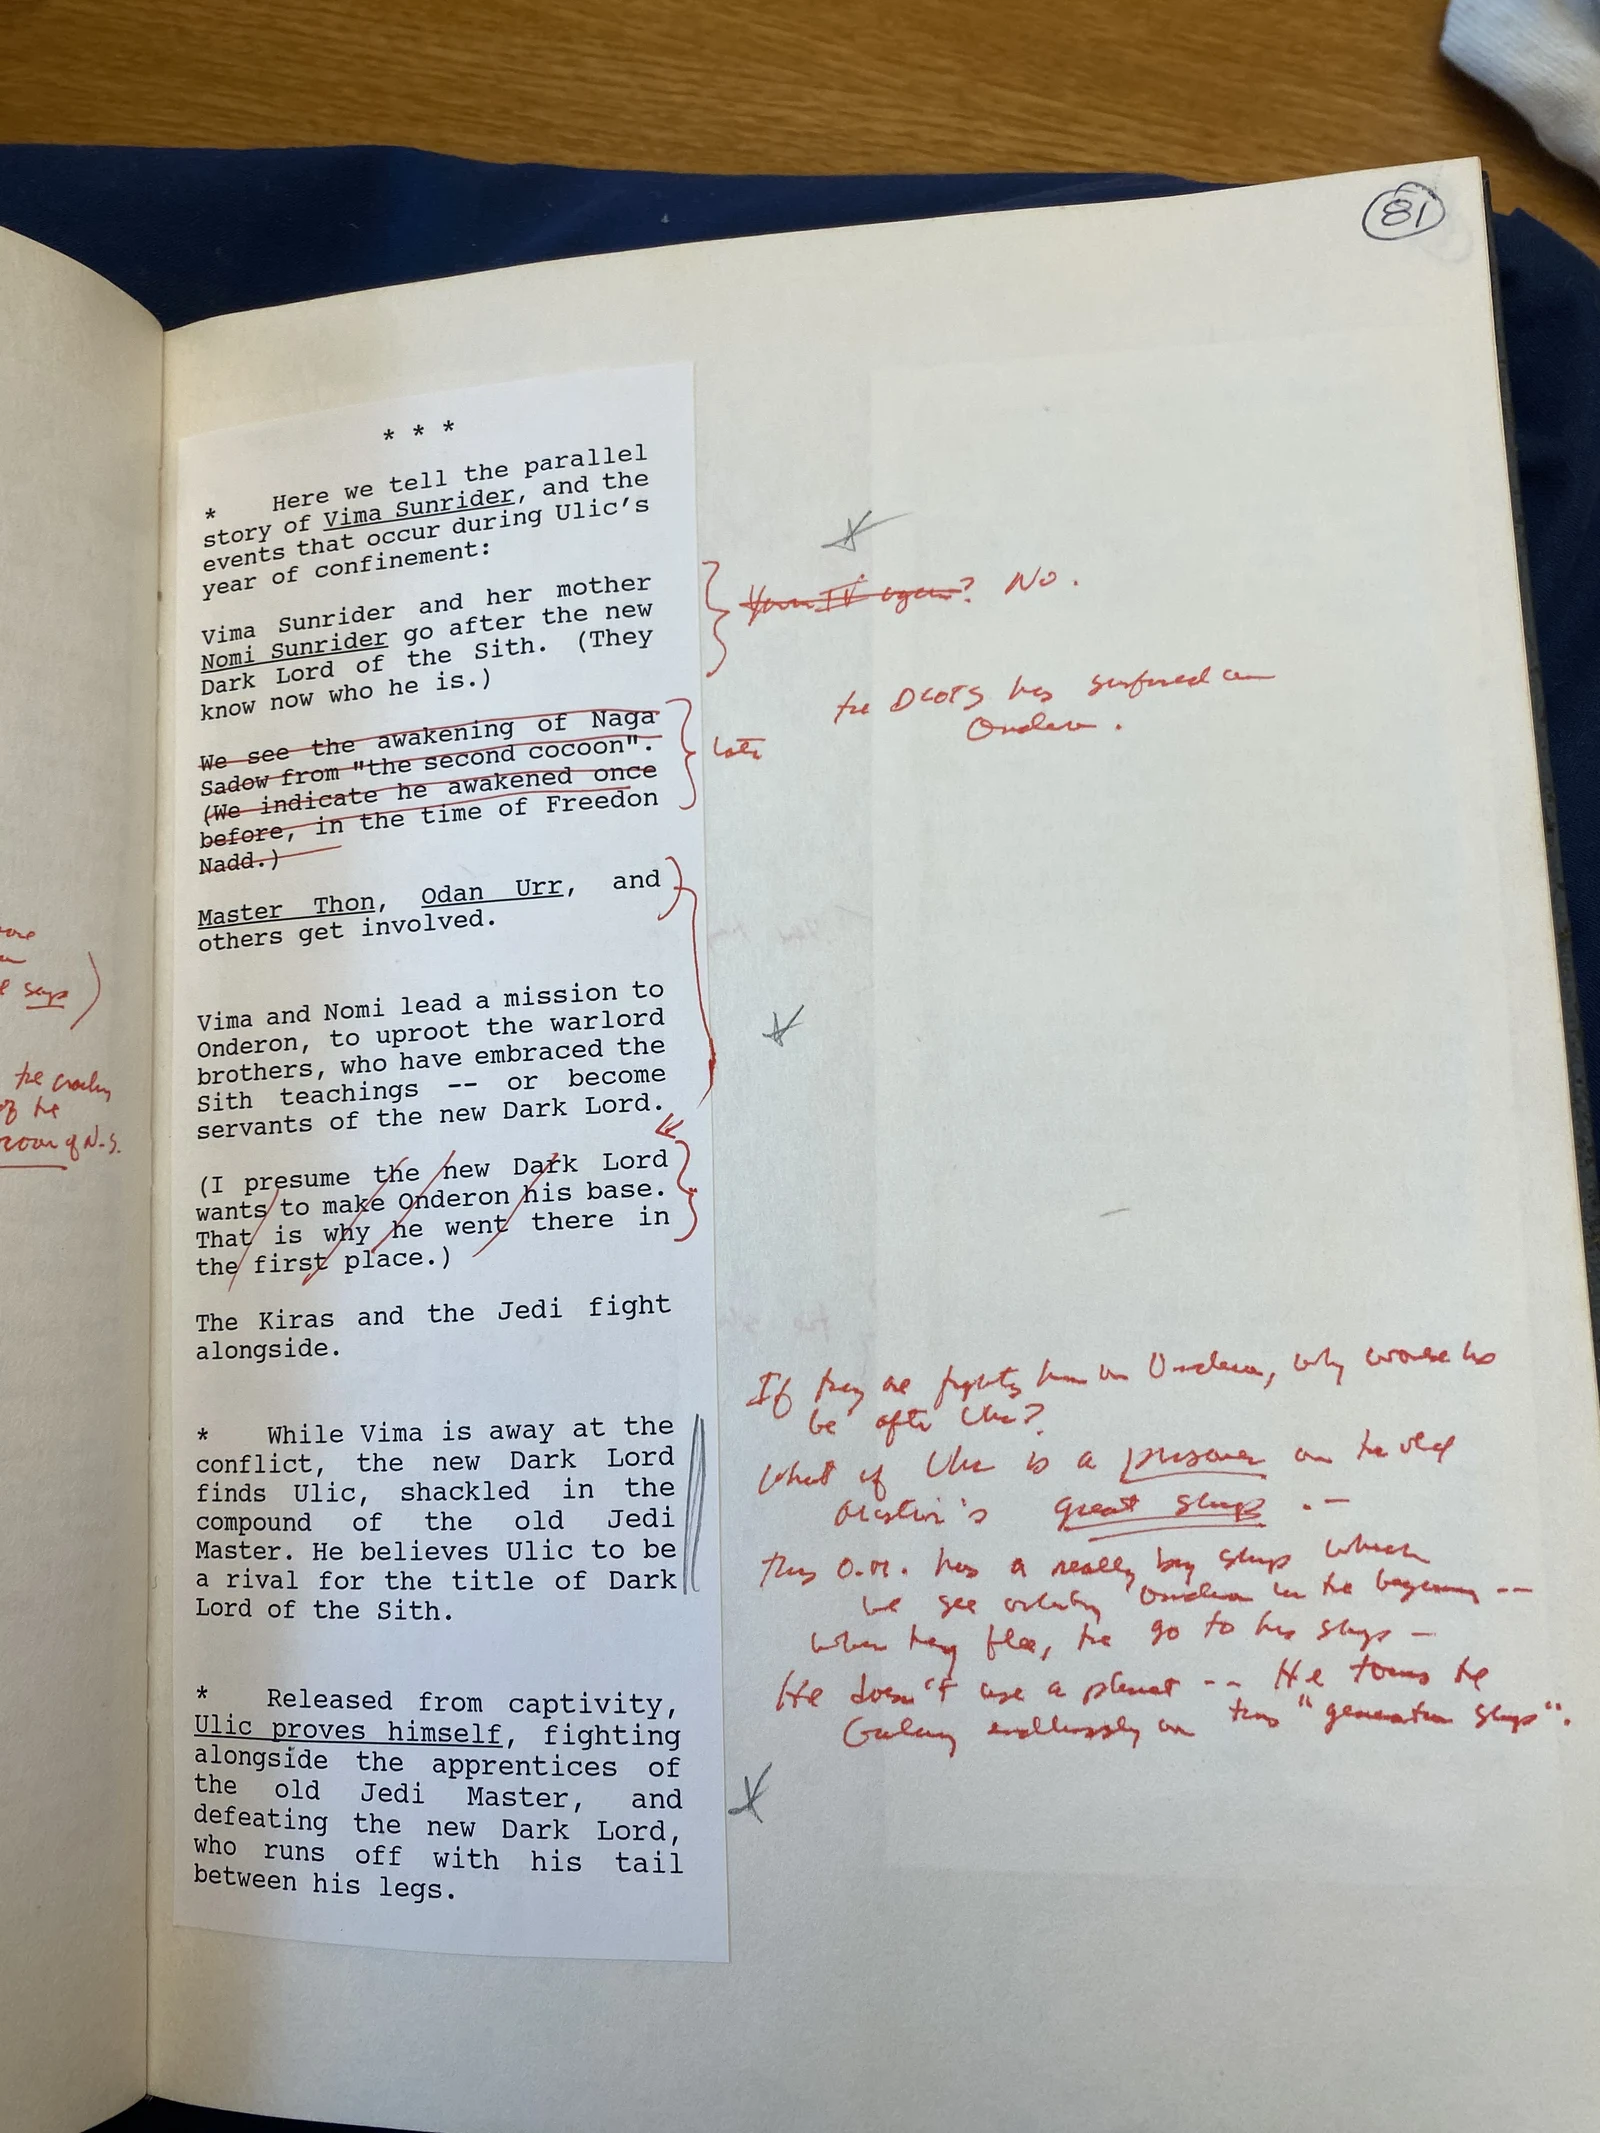 81
* * *
* Here we tell the parallel
story of Vima Sunrider, and the
events that occur during Ulic's
year of confinement:
Vima Sunrider and her mother
Nomi Sunrider go after the new
Dark Lord of the Sith. (They
know now who he is.)
Yavin IV again? No.
the DLOTS has surfaced on
Onderon.
We see the awakening of Naga
Sadow from "the second cocoon".
(We indicate he awakened once
before, in the time of Freedon
Nadd.)
later
Master Thon, Odan Urr, and
others get involved.
Vima and Nomi lead a mission to
Onderon, to uproot the warlord
brothers, who have embraced the
Sith teachings -- or become
servants of the new Dark Lord.
(I presume the new Dark Lord
wants to make Onderon his base.
That is why he went there in
the first place.)
The Kiras and the Jedi fight
alongside.
* While Vima is away at the
conflict, the new Dark Lord
finds Ulic, shackled in the
compound of the old Jedi
Master. He believes Ulic to be
a rival for the title of Dark
Lord of the Sith.
* Released from captivity,
Ulic proves himself, fighting
alongside the apprentices of
the old Jedi Master, and
defeating the new Dark Lord,
who runs off with his tail
between his legs.
If they are fighting him on Onderon, why would he
be after Ulic?
What if Ulic is a prisoner on the old
Master's great ship --
This O.M. has a really big ship which
we see orbiting Onderon in the beginning --
when they flee, they go to his ship -
He doesn't use a planet -- He tours the
Galaxy endlessly on this "generation ship".
ship)
the
of the
cocoon of N.S.